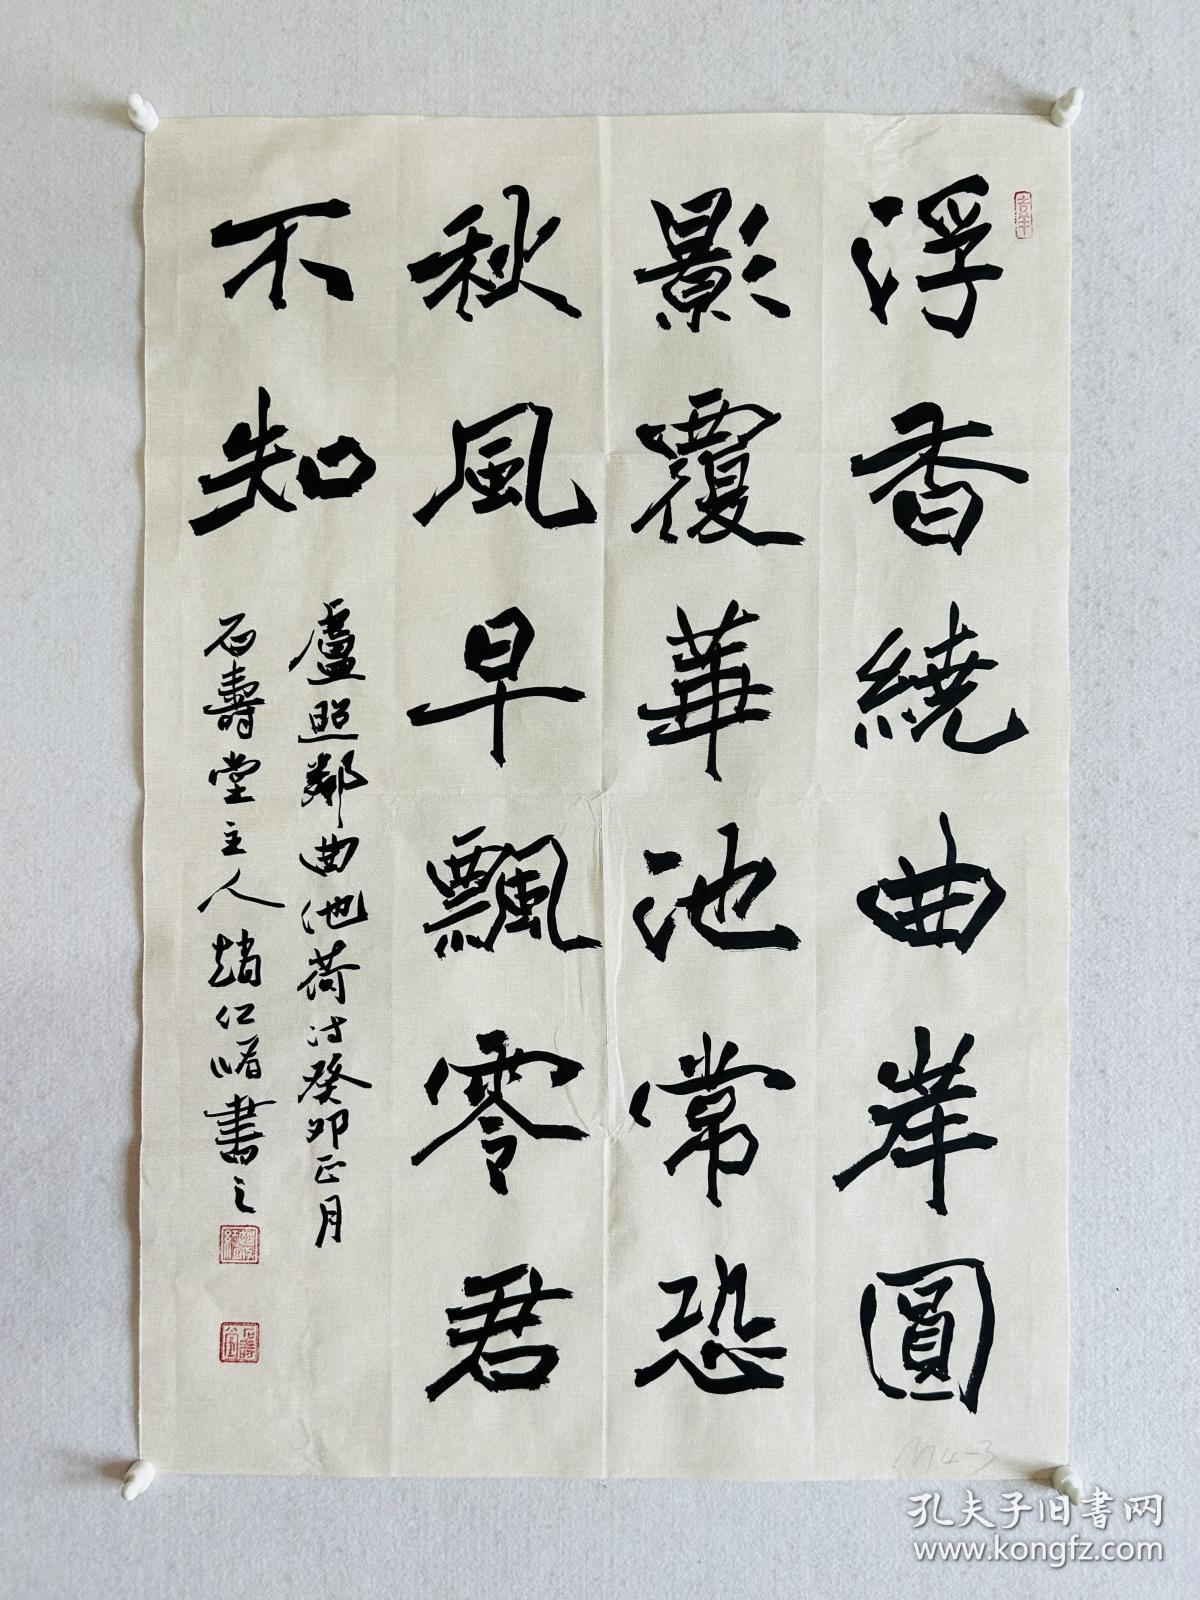 浮香繞曲岸圓
影覆華池常恐
秋風早飄零君
不知
盧照鄰曲池荷詩癸卯正月
石壽堂主人趙仁緒書之
M4-3
孔夫子旧书网
www.kongfz.com